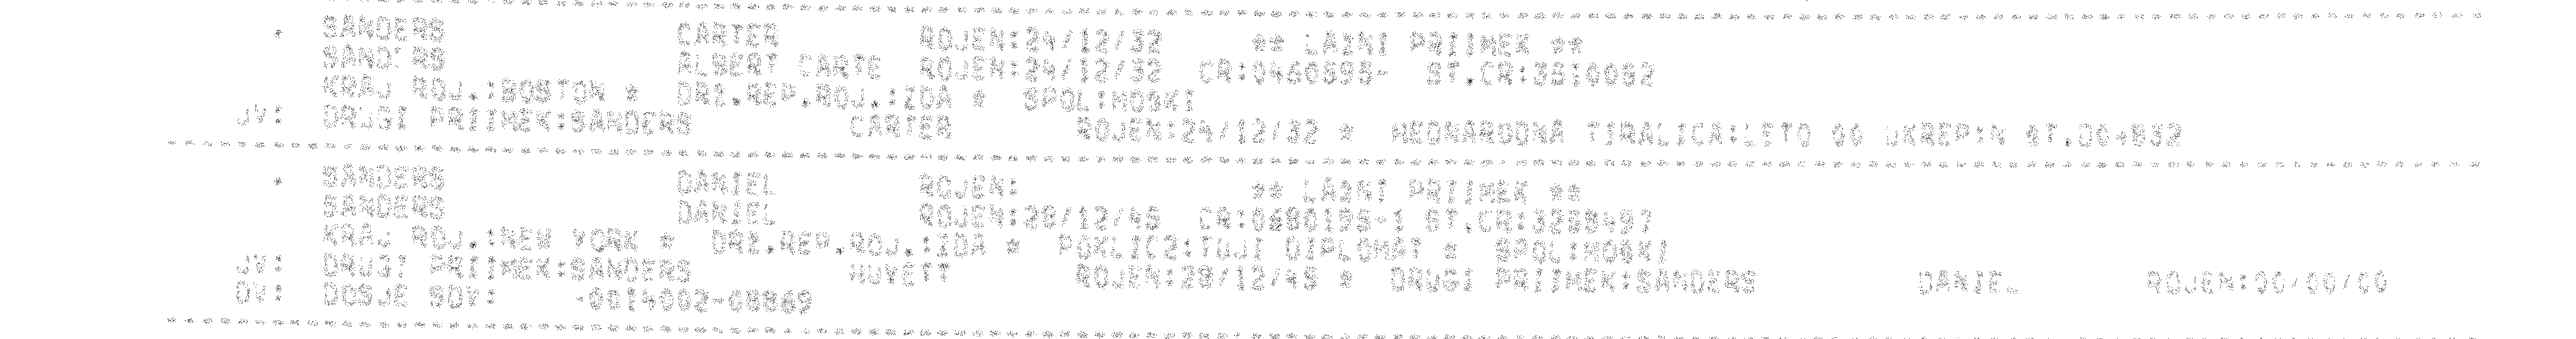 * SANDERS CARTER ROJEN:24/12/32 ** LAZNI PRIIMEK **
SANDERS ALBERT CARTE ROJEN:24/12/32 CR:0460595- ST.CR:3510052
KRAJ ROJ.:BOSTON * DRZ.REP.ROJ.:ZDA * SPOL:MOSKI
JV: DRUGI PRIIMEK:SANDERS CARTER ROJEN:24/12/32 * MEDNARODNA TIRALICA:LETO 00 UKREP:N ST.
* SANDERS DANIEL ROJEN: ** LAZNI PRIIMEK **
SANDERS DANIEL ROJEN:28/12/45 CR:0680195-1 ST.CR:3288497
KRAJ ROJ.:NEW YORK * DRZ.REP.ROJ.:ZDA * POKLIC2:TUJI DIPLOMAT * SPOL:MOSKI
JV: DRUGI PRIIMEK:SANDERS HUYETT ROJEN:28/12/45 * DRUGI PRIIMEK:SANDERS DANIEL ROJEN:00/00/00
DV: DOSJE SDV: -0014002-08869